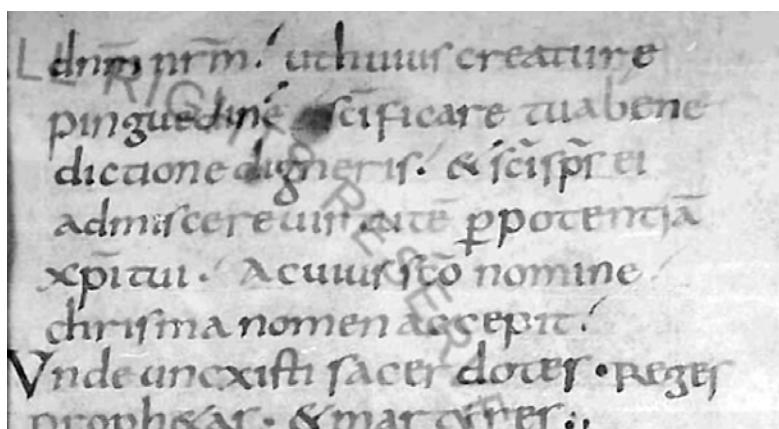 dnm̄ nrm̄. ut huius creature
pinguedinē scīficare tua bene
dictione digneris. & scī sp̄s ei
admiscere uirtutē ꝑ potentiā
xp̄i tui. A cuius scō nomine
chrisma nomen accepit.
Unde unxisti sacerdotes • Reges
proph&as. & martyres.,
ALL RIGHTS RESERVED